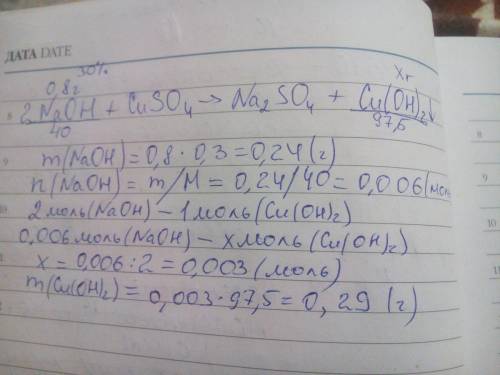 ДАТА DATE
0,8г 30% Xг
8 2NaOH + CuSO₄ → Na₂SO₄ + Cu(OH)₂↓
40 97,5
9 m(NaOH) = 0,8 · 0,3 = 0,24 (г) 9
n(NaOH) = m/M = 0,24/40 = 0,006 (моль
10 2 моль (NaOH) – 1 моль (Cu(OH)₂) 10
0,006 моль (NaOH) – x моль (Cu(OH)₂)
x = 0,006 : 2 = 0,003 (моль)
m(Cu(OH)₂) = 0,003 · 97,5 = 0,29 (г)